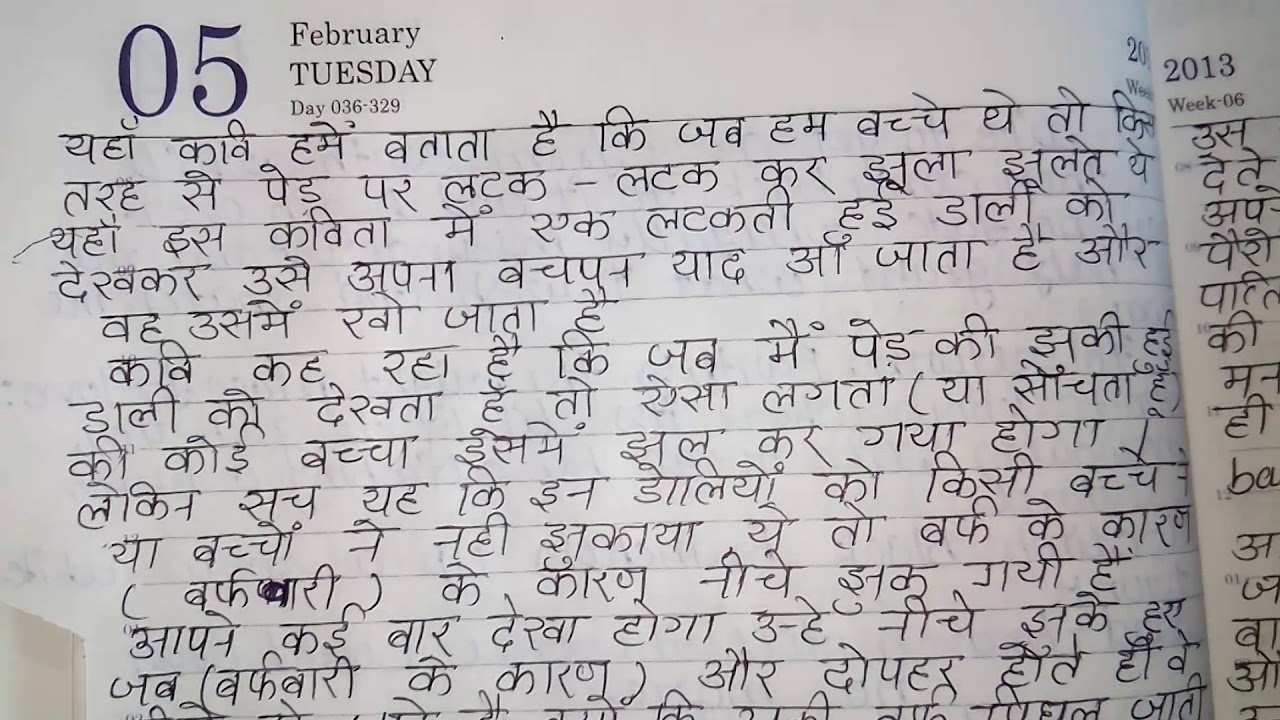 05
February
TUESDAY
Day 036-329
2013
Week-06
यहाँ कवि हमें बताता है कि जब हम बच्चे थे तो किस
तरह से पेड़ पर लटक - लटक कर झूला झूलते थे
यहाँ इस कविता में एक लटकती हुई डाली को
देखकर उसे अपना बचपन याद आ जाता है और
वह उसमें खो जाता है
कवि कह रहा है कि जब मैं पेड़ की झुकी हुई
डाली को देखता हूँ तो ऐसा लगता (या सोचता हूँ)
की कोई बच्चा इसमें झूल कर गया होगा।
लेकिन सच यह कि इन डालियों को किसी बच्चे ने
या बच्चों ने नही झुकाया ये तो बर्फ के कारण
(बर्फबारी) के कारण नीचे झुक गयी हैं
आपने कई बार देखा होगा उन्हे नीचे झुके हुए
जब (बर्फबारी के कारण) और दोपहर होते ही वे
उस
देते
पैरो
की
ही
ba